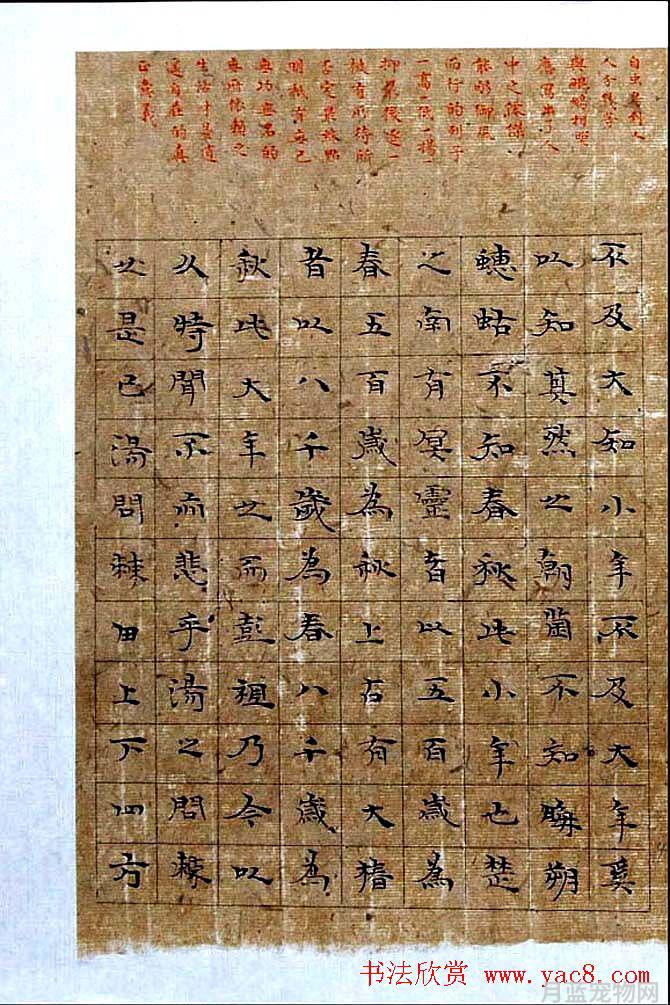 自虫鳥到人
人分幾等
與鵬鷃相映
應寫出了人
中之俊傑
能夠御風
而行的列子
一高一低一樣
抑最後逐一
被有所待所
否定最後點
明祇有無己
無功無名的
無所依賴之
生活才是逍
遙自在的真
正意義
不及大知小年不及大年奚
以知其然也朝菌不知晦朔
蟪蛄不知春秋此小年也楚
之南有冥靈者以五百歲為
春五百歲為秋上古有大椿
者以八千歲為春八千歲為
秋此大年也而彭祖乃今以
久特聞不而悲乎湯之問棘
也是已湯問棘曰上下四方
书法欣赏 www.yac8.com
月蓝宠物网